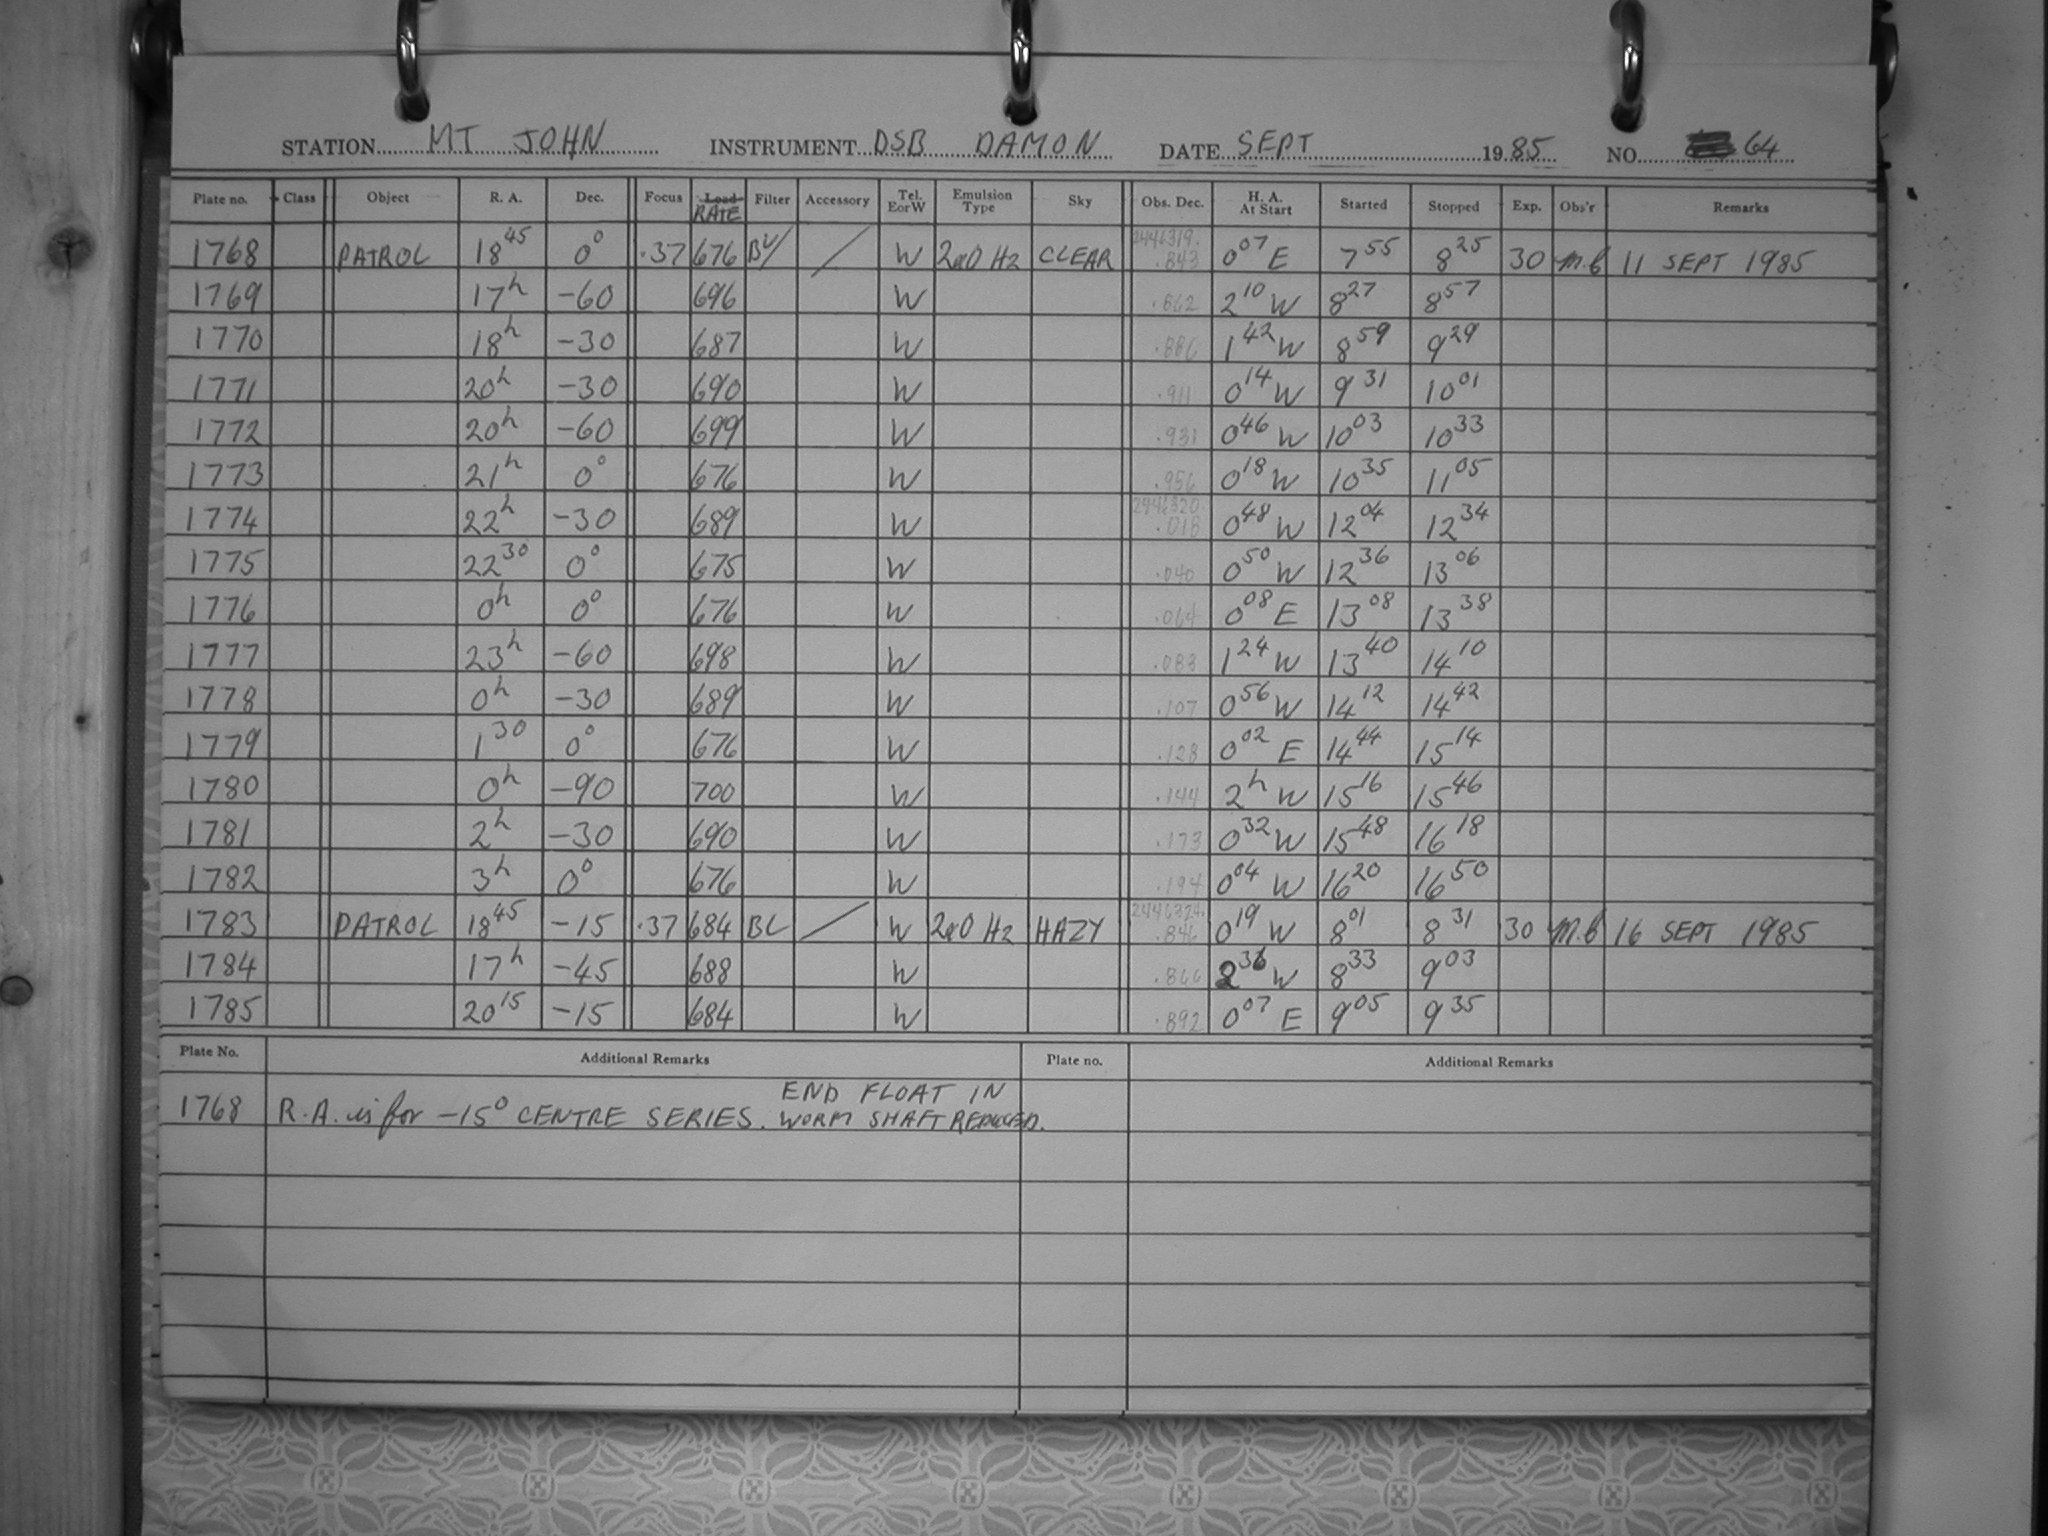 STATION MT JOHN INSTRUMENT DSB DAMON DATE SEPT 1985 NO. 64
Plate no. Class Object R. A. Dec. Focus Load RATE Filter Accessory Tel. E or W Emulsion Type Sky Obs. Dec. H. A. At Start Started Stopped Exp. Obs'r Remarks
1768 PATROL 18 45 0° .37 676 BL / W 2aO H2 CLEAR 2446319. .843 0 07 E 7 55 8 25 30 M.C 11 SEPT 1985
1769 17h -60 696 W .862 2 10 W 8 27 8 57
1770 18h -30 687 W .886 1 42 W 8 59 9 29
1771 20h -30 690 W .911 0 14 W 9 31 10 01
1772 20h -60 699 W .931 0 46 W 10 03 10 33
1773 21h 0° 676 W .956 0 18 W 10 35 11 05
1774 22h -30 689 W 2446320. .018 0 48 W 12 04 12 34
1775 22 30 0° 675 W .040 0 50 W 12 36 13 06
1776 0h 0° 676 W .064 0 08 E 13 08 13 38
1777 23h -60 698 W .083 1 24 W 13 40 14 10
1778 0h -30 689 W .107 0 56 W 14 12 14 42
1779 1 30 0° 676 W .128 0 02 E 14 44 15 14
1780 0h -90 700 W .144 2h W 15 16 15 46
1781 2h -30 690 W .173 0 32 W 15 48 16 18
1782 3h 0° 676 W .194 0 04 W 16 20 16 50
1783 PATROL 18 45 -15 .37 684 BL / W 2aO H2 HAZY 2446324. .846 0 19 W 8 01 8 31 30 M.C 16 SEPT 1985
1784 17h -45 688 W .866 2 36 W 8 33 9 03
1785 20 15 -15 684 W .892 0 07 E 9 05 9 35
Plate No. Additional Remarks Plate no. Additional Remarks
END FLOAT IN
1768 R.A. is for -15° CENTRE SERIES. WORM SHAFT REDUCED.